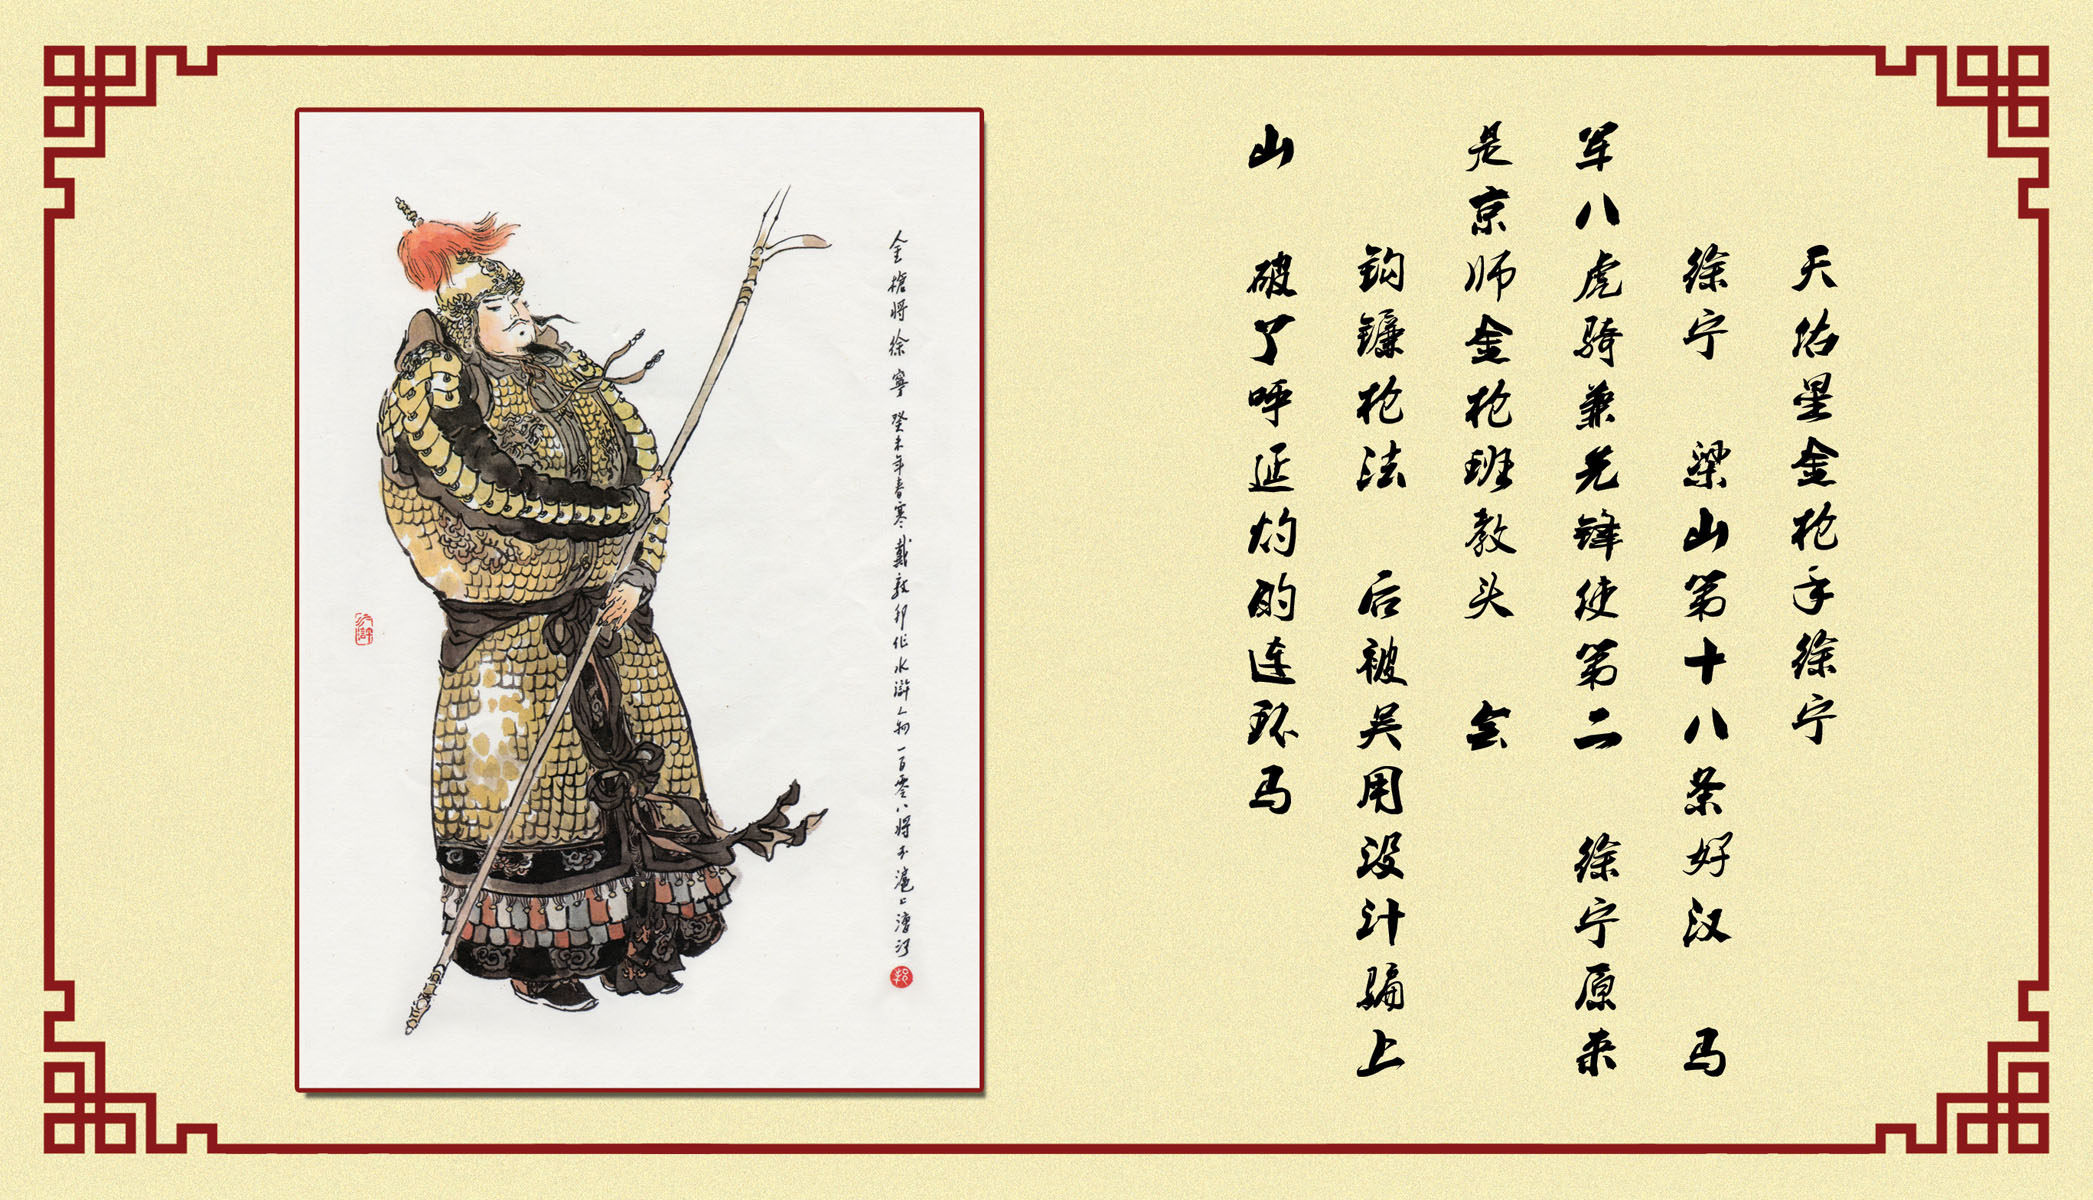 天佑星金枪手徐宁
徐宁 梁山第十八条好汉 马
军八虎骑兼先锋使第二 徐宁原来
是京师金枪班教头 会
钩镰枪法 后被吴用设计骗上
山 破了呼延灼的连环马
金槍將徐寧 癸未年春寒戴敦邦作水滸人物一百零八將于滬上漕河
邦
水滸